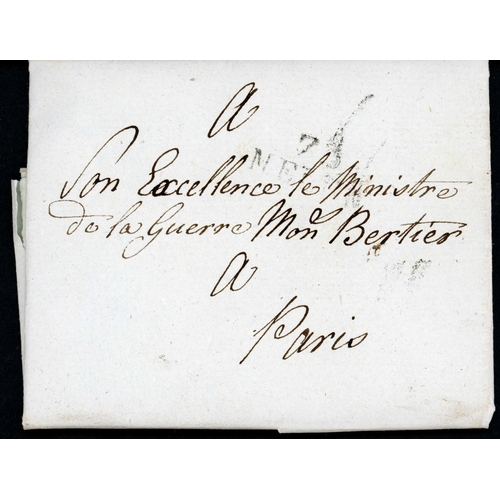 A
73
Son Excellence le Ministre
de la Guerre Mon Bertier
A
Paris